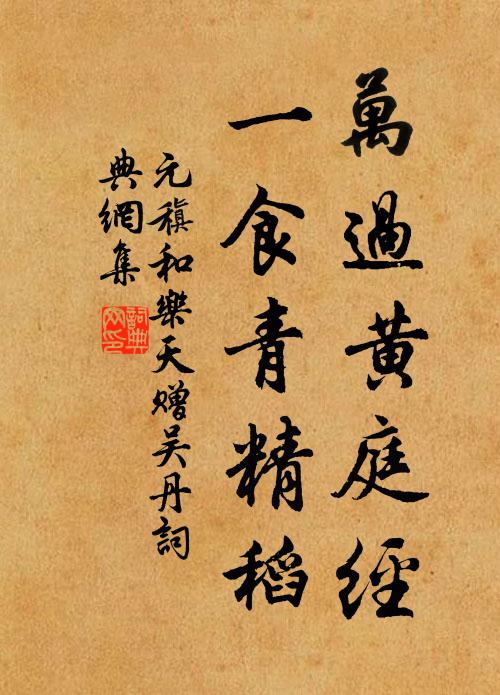 萬過黃庭經
一食青精稻
元稹和樂天贈吳丹詞
典網集
詞典
网印